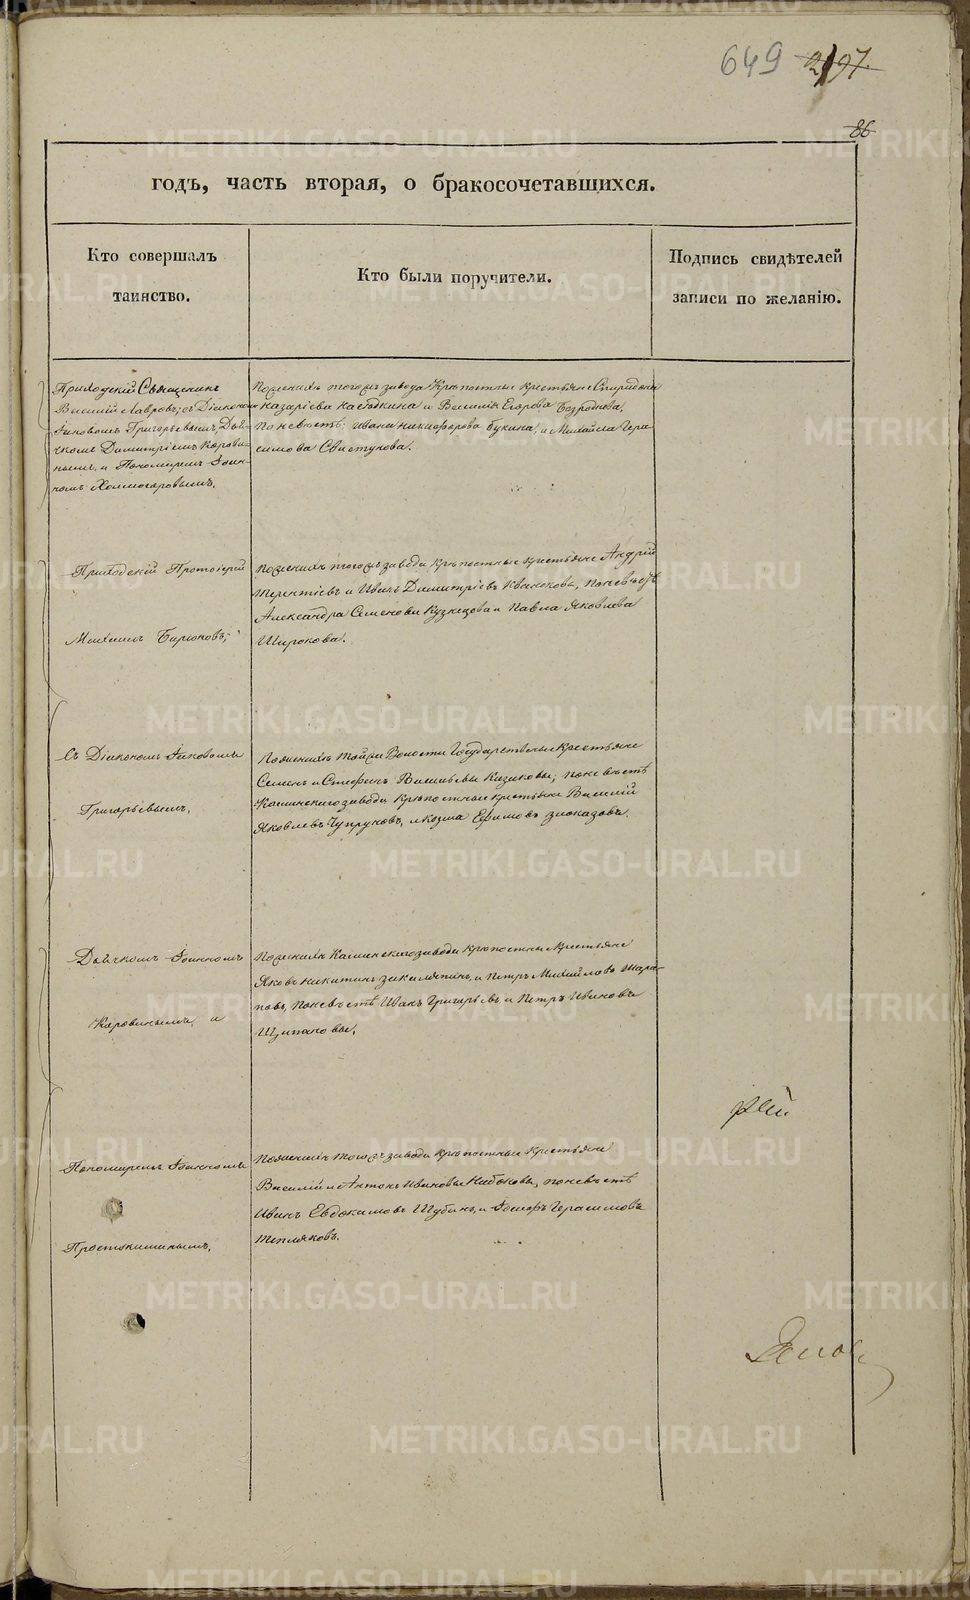 649 297
86
годъ, часть вторая, о бракосочетавшихся.
Кто совершалъ
таинство.
Кто были поручители.
Подпись свидѣтелей
записи по желанію.
Приходскій Священникъ
Василій Лавровъ; съ Діакономъ
Іаковомъ Григорьевымъ, Дья-
чкомъ Димитріемъ Корови-
нымъ, и Пономаремъ Іоан-
номъ Холмогоровымъ.
По женихѣ того жъ завода Крѣпостные крестьяне Спиридонъ
Назаріева и Василія Егорова
По невѣстѣ; Ивана Никифорова Букина, и Михайла Гера-
симова Свистунова.
Приходскій Протоіерей
Михаилъ Бирюковъ;
По женихѣ того жъ завода крѣпостные крестьяне Андрей
Терентіевъ и Иванъ Димитріевъ по невѣстѣ
Александра Семенова Кузнецова и Павла Яковлева
Широкова.
Съ Діакономъ Іаковомъ
Григорьевымъ,
По женихѣ той же Волости Государственные крестьяне
Семенъ и Стефанъ Васильевы Казаковы; по невѣстѣ
Каслинскаго завода крѣпостные крестьяне Василій
Яковлевъ Чупруновъ, и Козма Ефимовъ Злоказовъ.
Дьячкомъ Іоанномъ
Коровинымъ, и
По женихѣ Каслинскаго завода крѣпостные крестьяне
Яковъ Никитинъ Закаляпинъ, и Петръ Михайловъ Шара-
повъ, по невѣстѣ Иванъ Григорьевъ и Петръ Ивановъ
Щипановы.
Пономаремъ Іоанномъ
Простокишинымъ.
По женихѣ того жъ завода крѣпостные крестьяне
Василій и Антонъ Ивановы Набоковы, по невѣстѣ
Иванъ Евдокимовъ Шубинъ, и Герасимовъ
Тепляковъ.
METRIKI.GASO-URAL.RU